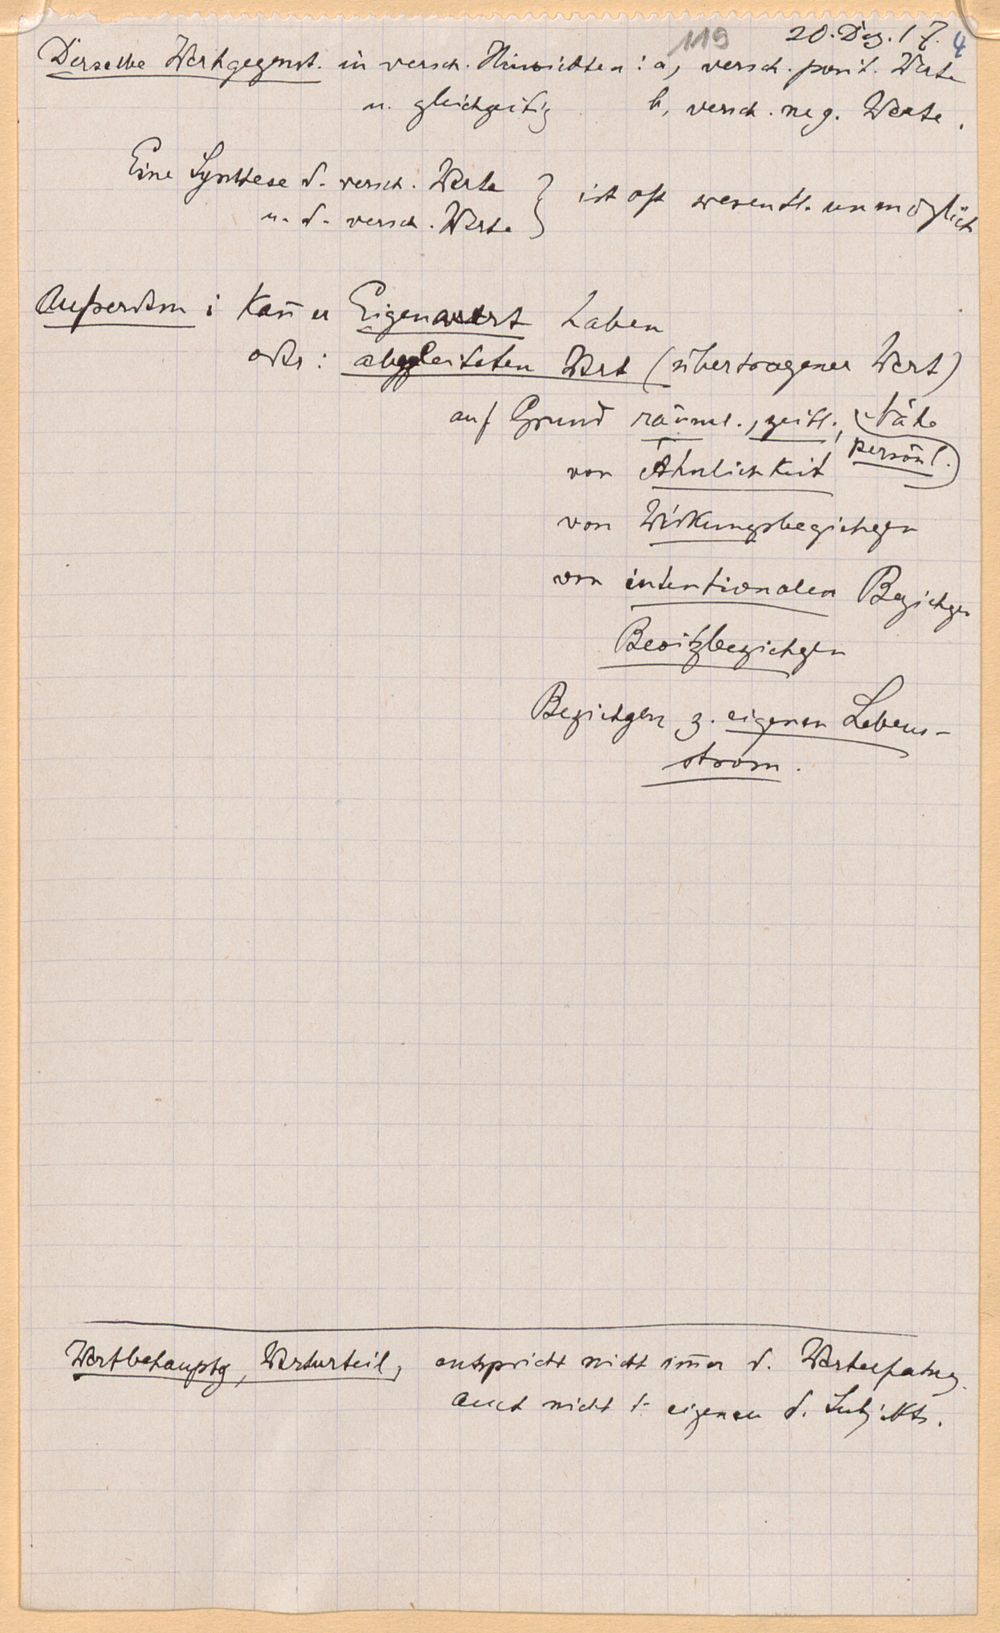 119 20. Dez. 17. 4
Derselbe Wertgegenst. in versch. Hinsichten: a, versch. posit. Werte
u. gleichzeitig b, versch. neg. Werte.
Eine Synthese d. versch. Werte } ist oft wesentl. unmöglich
u. d. versch. Werte
Außerdem: Kan̄ er Eigenwert haben
oder: abgeleiteten Wert (übertragener Wert)
auf Grund räuml., zeitl., Nähe
persönl.
von Ähnlichkeit
von Wirkungsbeziehgen
von intentionalen Beziehgen
Besitzbeziehgen
Beziehgen z. eigenen Lebens-
strom.
Wertbehauptg, Werturteil, entspricht nicht im̄er d. Werterfahrg.
auch nicht d. eigenen d. Subjekts.